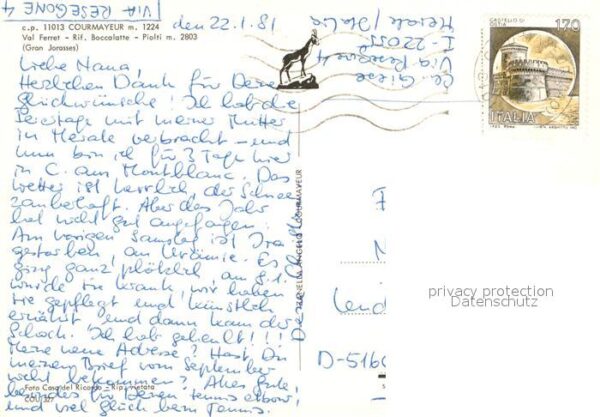 4 | VIA RESEGONE |
c.p. 11013 COURMAYEUR m. 1224
Val Ferret - Rif. Boccalatte - Piolti m. 2803
(Gran Jorasses)
den 22.1.81
Liebe Nana,
Herzlichen Dank für Deine
Glückwünsche! Ich hab die
Feiertage mit meiner Mutter
in Merate verbracht - und
nun bin ich für 3 Tage hier
in C. am Montblanc. Das
Wetter ist herrlich, der Schnee
zauberhaft. Aber das Jahr
hat nicht gut angefangen.
Am vorigen Samstag ist
gestorben, an Urämie. Es
ging ganz plötzlich am 9.1.
wurde sie krank, wir haben
sie gepflegt und künstlich
ernährt und dann kam der
Schock. Ich hab geheult!!!
Meine neue Adresse? Hast Du
meinen Brief vom September
nicht bekommen? Alles Gute
besonders für Deinen tennis elbow!
und viel Glück beim Tennis.
Foto Casa del Ricordo - Rip. vietata
COU 327
Via Resegone 4
I-22055
Merate / Italia
COURMAYEUR
CASTELLO DI
OSTIA
170
ITALIA
D-5160
privacy protection
Datenschutz